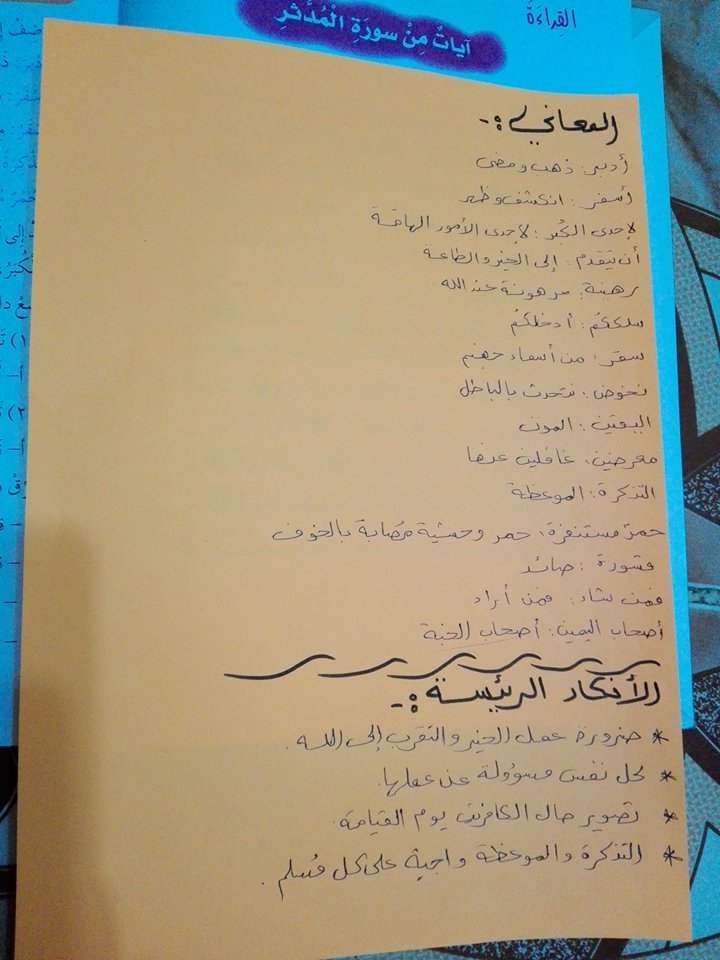 القِراءَةُ
آياتٌ مِنْ سورَةِ الْمُدَّثِّرِ
المعاني :-
أدبر : ذهب ومضى
أسفر : انكشف وظهر
لإحدى الكُبر : لإحدى الأمور الهامّة
أن يتقدم : إلى الخير والطاعة
رهينة : مرهونة عند الله
سلككم : أدخلكم
سقر : من أسماء جهنم
نخوض : نتحدث بالباطل
اليقين : الموت
معرضين : غافلين عنها
التذكرة : الموعظة
حمرٌ مستنفرة : حمر وحشية مُصابة بالخوف
قسورة : صائد
فمن شاء : فمن أراد
أصحاب اليمين : أصحاب الجنة
الأفكار الرئيسة :-
* ضرورة عمل الخير والتقرب إلى الله .
* كل نفس مسؤولة عن عملها .
* تصوير حال الكافرين يوم القيامة .
* التذكرة والموعظة واجبة على كل مُسلم .